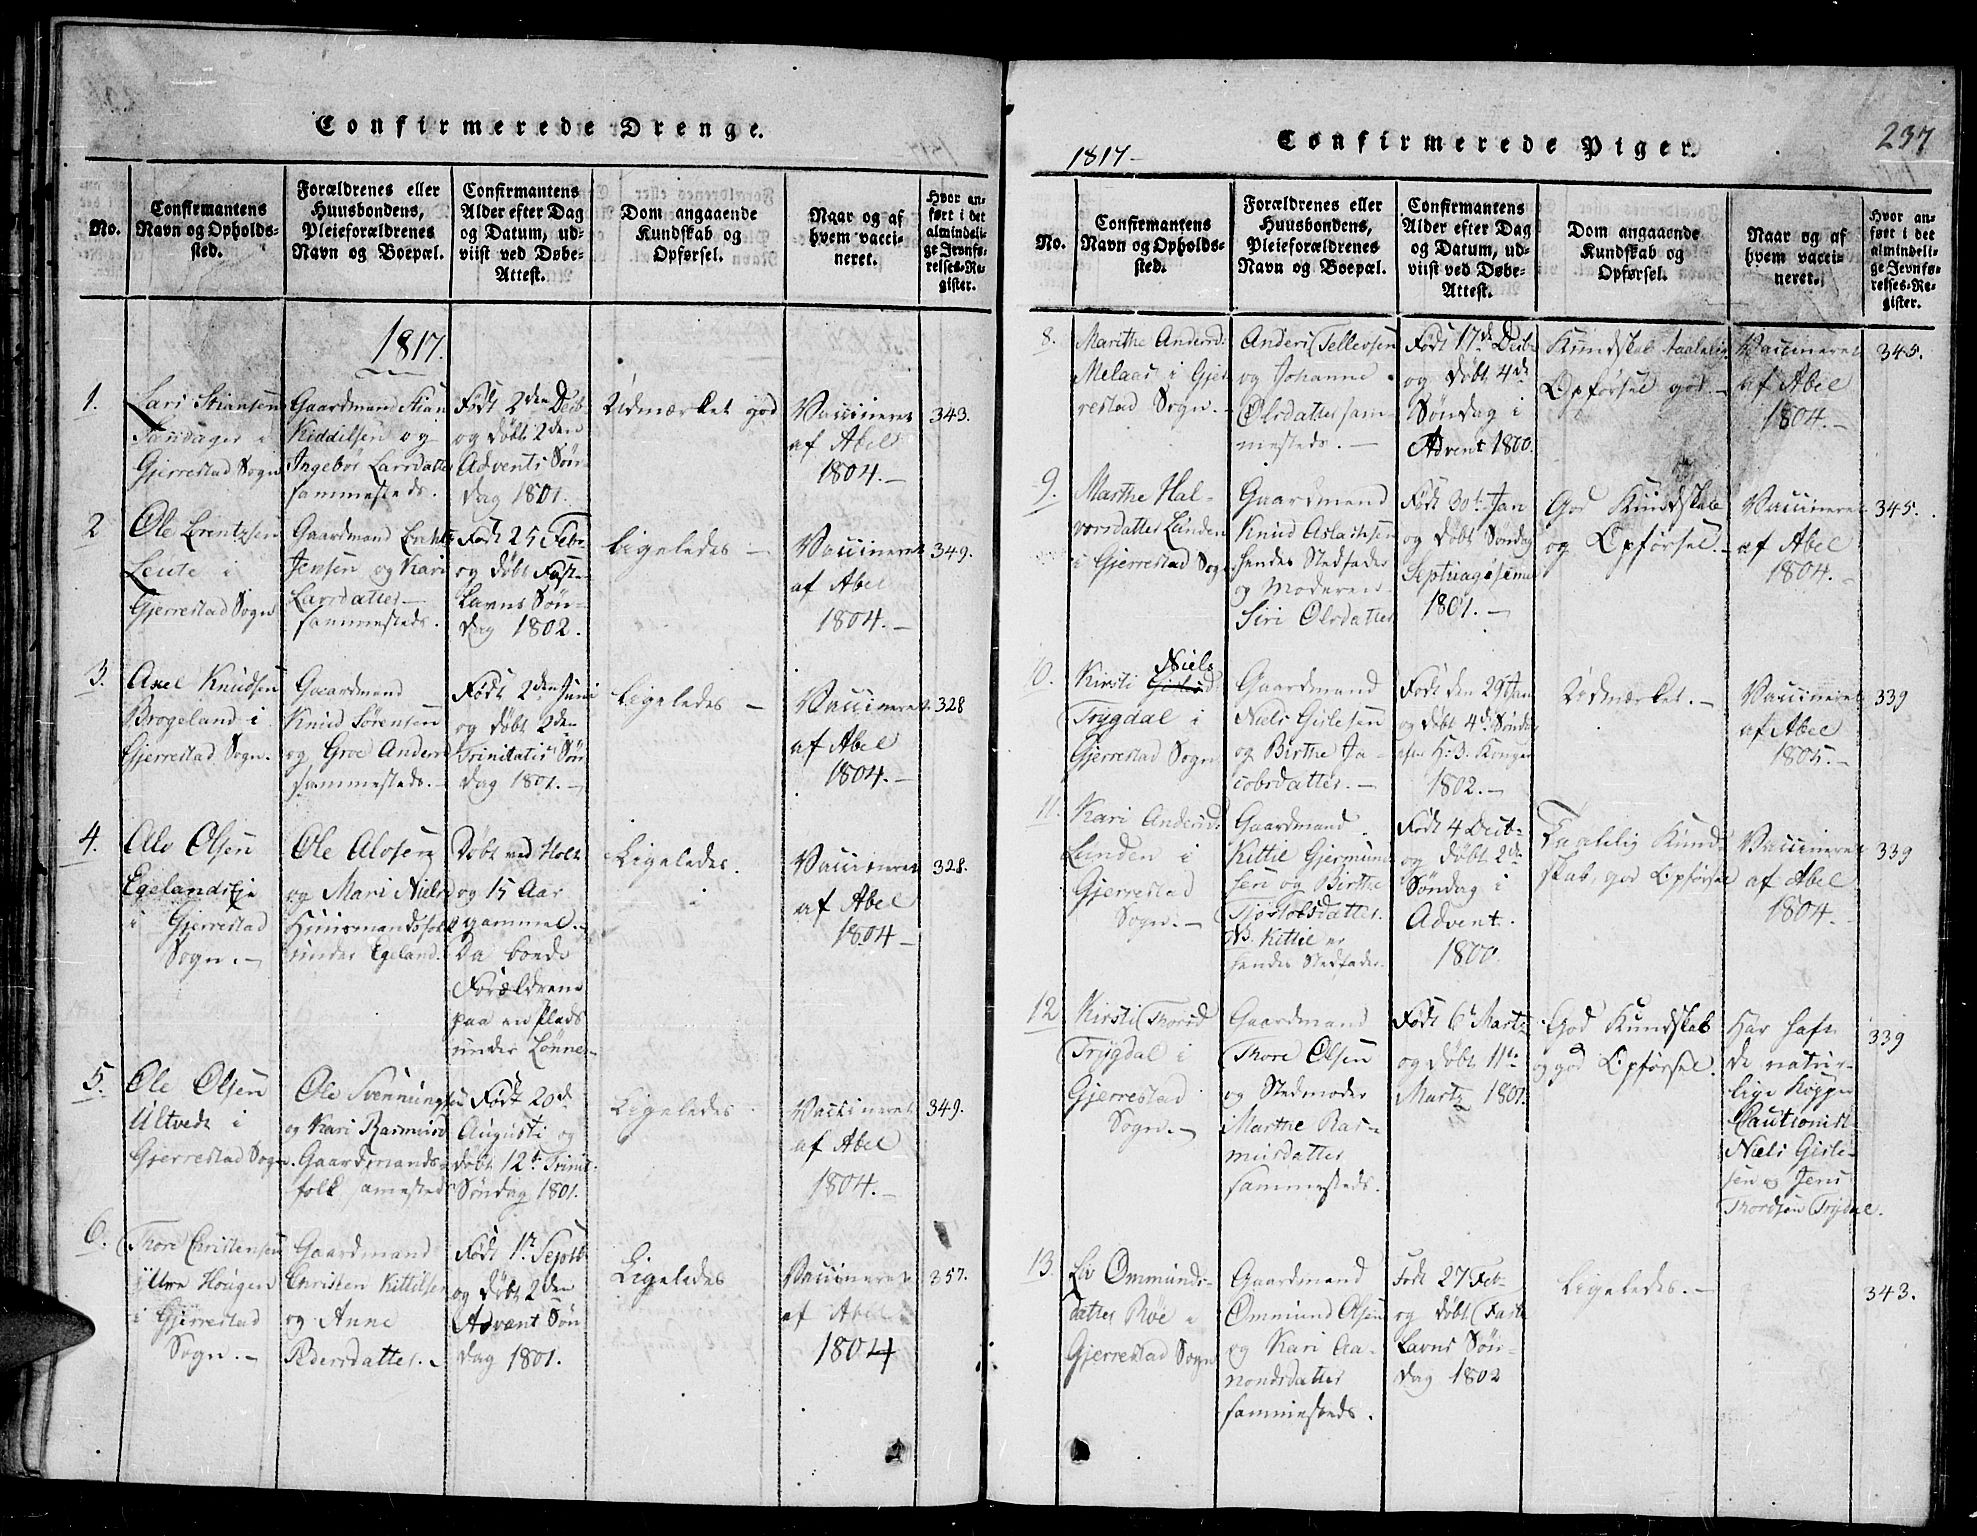 Confirmerede Drenge.
No.
Confirmantens
Navn og Opholds-
sted.
Forældrenes eller
Huusbondens,
Pleieforældrenes
Navn og Boepæl.
Confirmantens
Alder efter Dag
og Datum, ud-
viist ved Døbe-
Attest.
Dom angaaende
Kundskab og
Opførsel.
Naar og af
hvem vacci-
neret.
Hvor an-
ført i det
almindeli-
ge Jevnfø-
relses-Re-
gister.
1817.
1.
Lars Stiansen
Sandager i
Gjerrestad Sogn
Gaardmand Stian
Kiddilsen og
Ingebor Larsdatter
sammesteds.
Født 2den Decb
og døbt 2den
Advents Søn-
dag 1801.
Udmærket god
Vaccineret
af Abel
1804.-
343.
2
Ole Lorentzen
Leute i
Gjerrestad Sogn
Gaardmand
Jensen og Kari
Larsdatter
sammesteds.
Født 25 Febr.
og døbt Faste-
lavns Søn-
dag 1802.
Ligeledes -
Vaccineret
af Abel
1804.-
349.
3.
Axel Knudsen
Brogeland i
Gjerrestad Sogn.
Gaardmand
Knud Sørensen
og Groe Andersd
sammesteds.-
Født 2den Juni
og døbt 2den
Trinitatis Søn
dag 1801.-
Ligeledes -
Vaccineret
af Abel
1804.-
328
4.
Alv Olsen
Egelands Eje
i Gjerrestad
Sogn.-
Ole Alvsen
og Mari Nielsd
Huusmandsfolk
under Egeland.
Døbt ved Holt
og 15 Aar
gammel.-
Da boede
Forældrene
paa en Plads
under Lønne-
Ligeledes.
Vaccineret
af Abel
1804-
328.
5.
Ole Olsen
Ultvedt i
Gjerrestad Sogn.
Ole Svenningsen
og Kari Rasmusd
Gaardmands-
folk samesteds
Født 20d
Augusti og
døbt 12te Trinit.
Søndag 1801.
Ligeledes
Vaccineret
af Abel
1804.-
349.
6.
Thore Christensen
Ytre Hougen
i Gjerrestad
Sogn.-
Gaardmand
Christen Kittilsen
og Anne
Pedersdatter.-
Født 1te Septb
og døbt 2den
Advent Søn
dag 1801.
Ligeledes
Vaccineret
af Abel
1804
357.
1817-
Confirmerede Piger.
237
No.
Confirmantens
Navn og Opholds-
sted.
Forældrenes eller
Huusbondens,
Pleieforældrenes
Navn og Boepæl.
Confirmantens
Alder efter Dag
og Datum, ud-
viist ved Døbe-
Attest.
Dom angaaende
Kundskab og
Opførsel.
Naar og af
hvem vacci-
neret.
Hvor an-
ført i det
almindeli-
ge Jevnfø-
relses-Re-
gister.
8.
Marthe Andersd:
Melaas i Gjer
restad Sogn.-
Anders Tellevsen
og Johanne
Olsdatter sam-
mesteds.-
Født 17de Decb
og døbt 4de
Søndag i
Advent 1800.
Kundskab taalelig
Opførsel god-
Vaccineret
af Abel
1804.-
345.
9.
Marthe Hal-
vorsdatter Lunden
i Gjerrestad Sogn
Gaardmand
Knud Aslachsen
hendes Stedfader
og Moderen
Siri Olsdatter
Født 30te Jan
og døbt Søndag
Septuagesima
1801.-
God Kundskab
og Opførsel.-
Vaccineret
af Abel
1804.-
345.
10.
Niels
Kirsti d:
Trygdal i
Gjerrestad Sogn
Gaardmand
Niels Gislesen
og Birthe Ja-
cobsdatter.-
Født den 29 Jan
og døbt 4de Søndag
efter H: 3. Konger
1802.-
Udmærket.-
Vaccineret
af Abel
1805.-
339
11.
Kari Andersd:
Lunden i
Gjerrestad
Sogn.-
Gaardmand
Kittil Gjermund
sen og Birthe
Tjostolsdatter.
NB. Kittil er
hendes Stedfader.
Født 4 Decb-
og døbt 2de
Søndag i
Advent.
1800.
Taalelig Kund-
skab, god Opførsel
Vaccineret
af Abel
1804.-
339
12
Kirsti Thorsd
Trygdal i
Gjerrestad
Sogn.-
Gaardmand
Thore Olsen
og Stedmoder
Marthe Ras-
musdatter
sammesteds.
Født 6te Martz
og døbt 11te
Martz 1801.
God Kundskab
og god Opførsel.
Har haft
de natur-
lige Kopper
Cautionist
Niels Gisle-
sen og Jens
Thordsøn Trydal.
339
13.
Liv Ommunds-
datter Røe i
Gjerrestad Sogn
Gaardmand
Ommund Olsen
og Kari Aa-
nondsdatter
sammesteds.
Født 27 Feb-
og døbt Faste
Lavns Søn-
dag 1802
Ligeledes.-
343.